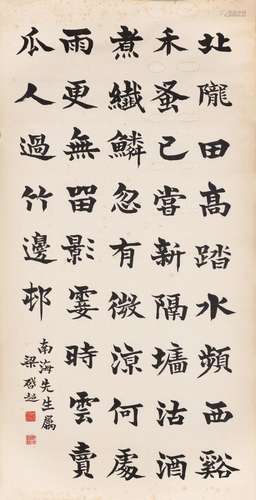 北隴田高踏水頻西谿
禾蚤已嘗新隔墻沽酒
煮纖鱗忽有微涼何處
雨更無留影霎時雲賣
瓜人過竹邊邨
南海先生屬
梁啟超